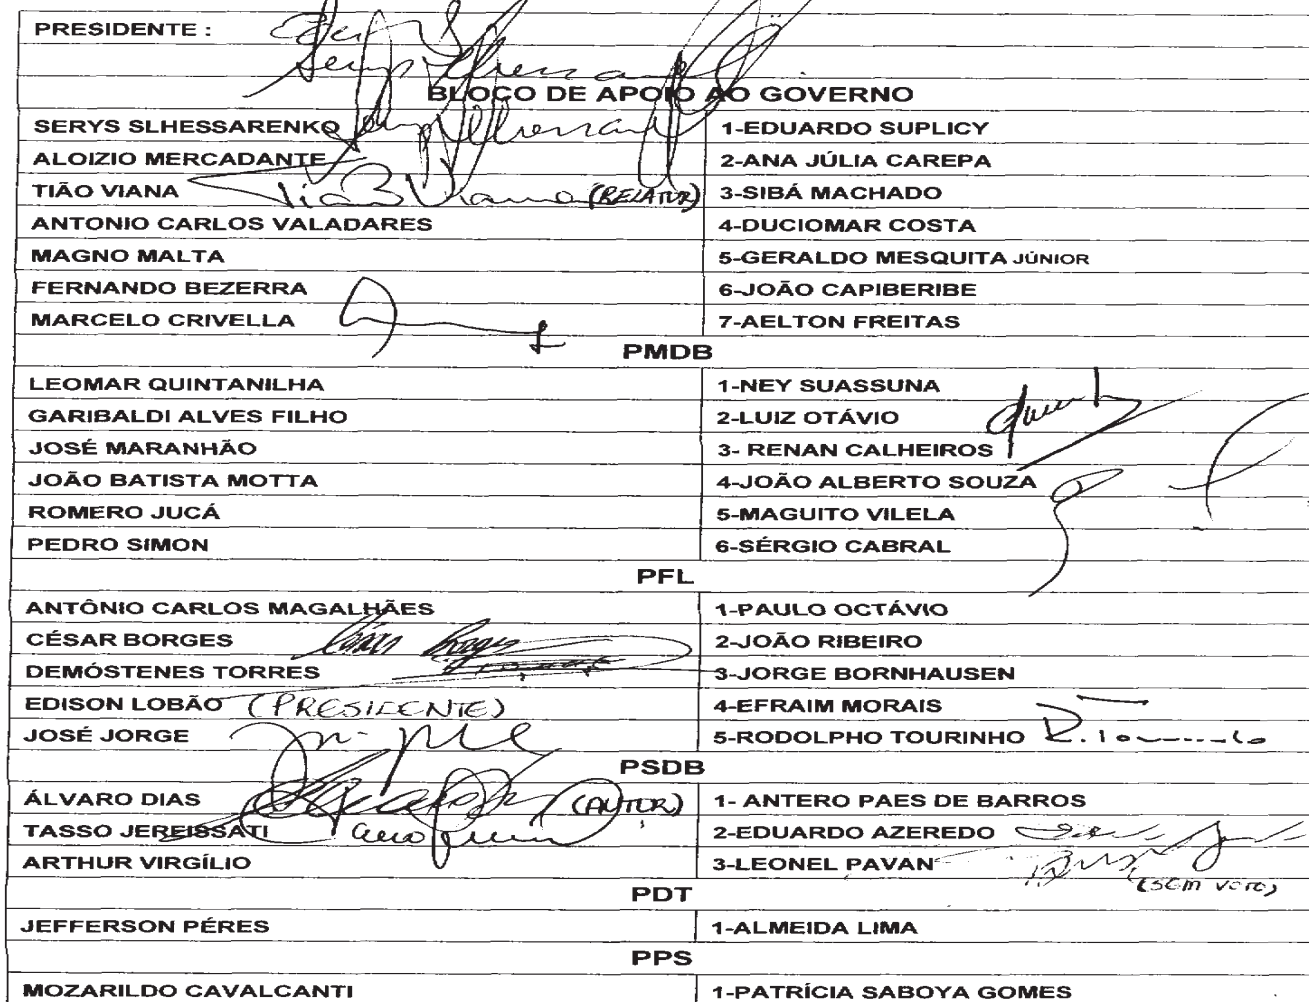 PRESIDENTE :
BLOCO DE APOIO AO GOVERNO
SERYS SLHESSARENKO 1-EDUARDO SUPLICY
ALOIZIO MERCADANTE 2-ANA JÚLIA CAREPA
TIÃO VIANA Tião Viana (RELATOR) 3-SIBÁ MACHADO
ANTONIO CARLOS VALADARES 4-DUCIOMAR COSTA
MAGNO MALTA 5-GERALDO MESQUITA JÚNIOR
FERNANDO BEZERRA 6-JOÃO CAPIBERIBE
MARCELO CRIVELLA 7-AELTON FREITAS
PMDB
LEOMAR QUINTANILHA 1-NEY SUASSUNA
GARIBALDI ALVES FILHO 2-LUIZ OTÁVIO
JOSÉ MARANHÃO 3- RENAN CALHEIROS
JOÃO BATISTA MOTTA 4-JOÃO ALBERTO SOUZA
ROMERO JUCÁ 5-MAGUITO VILELA
PEDRO SIMON 6-SÉRGIO CABRAL
PFL
ANTÔNIO CARLOS MAGALHÃES 1-PAULO OCTÁVIO
CÉSAR BORGES César Borges 2-JOÃO RIBEIRO
DEMÓSTENES TORRES 3-JORGE BORNHAUSEN
EDISON LOBÃO (PRESIDENTE) 4-EFRAIM MORAIS
JOSÉ JORGE 5-RODOLPHO TOURINHO R. Tourinho
PSDB
ÁLVARO DIAS (AUTOR) 1- ANTERO PAES DE BARROS
TASSO JEREISSATI 2-EDUARDO AZEREDO
ARTHUR VIRGÍLIO 3-LEONEL PAVAN (SEM VOTO)
PDT
JEFFERSON PÉRES 1-ALMEIDA LIMA
PPS
MOZARILDO CAVALCANTI 1-PATRÍCIA SABOYA GOMES